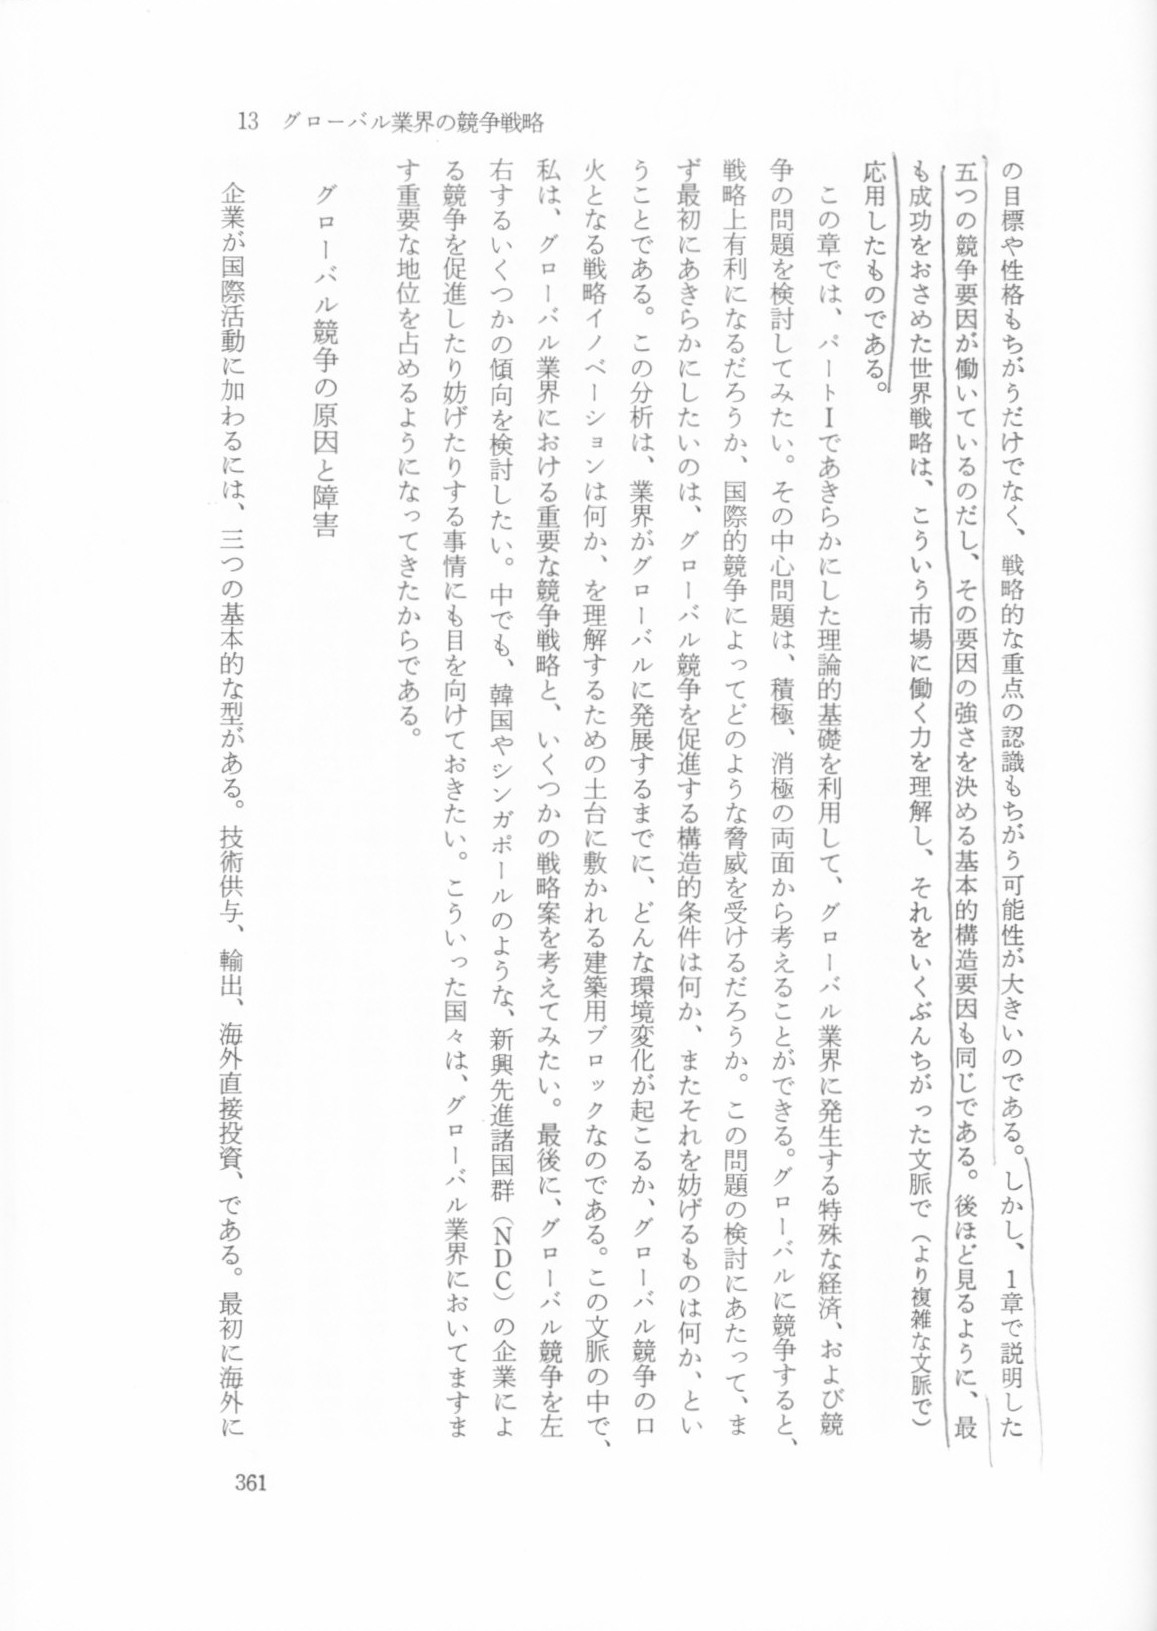 13 グローバル業界の競争戦略
の目標や性格もちがうだけでなく、戦略的な重点の認識もちがう可能性が大きいのである。しかし、1章で説明した
五つの競争要因が働いているのだし、その要因の強さを決める基本的構造要因も同じである。後ほど見るように、最
も成功をおさめた世界戦略は、こういう市場に働く力を理解し、それをいくぶんちがった文脈で（より複雑な文脈で）
応用したものである。
この章では、パートIであきらかにした理論的基礎を利用して、グローバル業界に発生する特殊な経済、および競
争の問題を検討してみたい。その中心問題は、積極、消極の両面から考えることができる。グローバルに競争すると、
戦略上有利になるだろうか、国際的競争によってどのような脅威を受けるだろうか。この問題の検討にあたって、ま
ず最初にあきらかにしたいのは、グローバル競争を促進する構造的条件は何か、またそれを妨げるものは何か、とい
うことである。この分析は、業界がグローバルに発展するまでに、どんな環境変化が起こるか、グローバル競争の口
火となる戦略イノベーションは何か、を理解するための土台に敷かれる建築用ブロックなのである。この文脈の中で、
私は、グローバル業界における重要な競争戦略と、いくつかの戦略案を考えてみたい。最後に、グローバル競争を左
右するいくつかの傾向を検討したい。中でも、韓国やシンガポールのような、新興先進諸国群（NDC）の企業によ
る競争を促進したり妨げたりする事情にも目を向けておきたい。こういった国々は、グローバル業界においてますま
す重要な地位を占めるようになってきたからである。
グローバル競争の原因と障害
企業が国際活動に加わるには、三つの基本的な型がある。技術供与、輸出、海外直接投資、である。最初に海外に
361